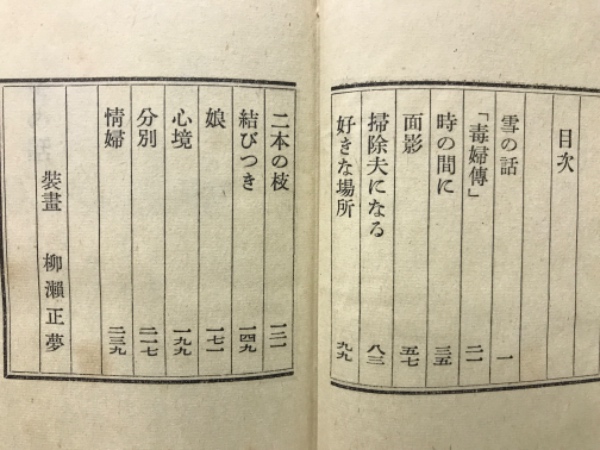 目次
雪の話 一
「毒婦傳」 二一
時の間に 三五
面影 五七
掃除夫になる 八三
好きな場所 九九
二本の枝 一二一
結びつき 一四九
娘 一七一
心境 一九九
分別 二一七
情婦 二三九
裝畫 柳瀨正夢